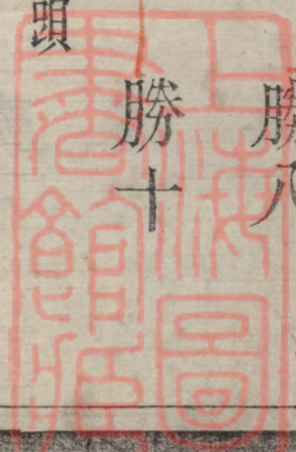 勝八
勝十
頭
上海圖
書館藏